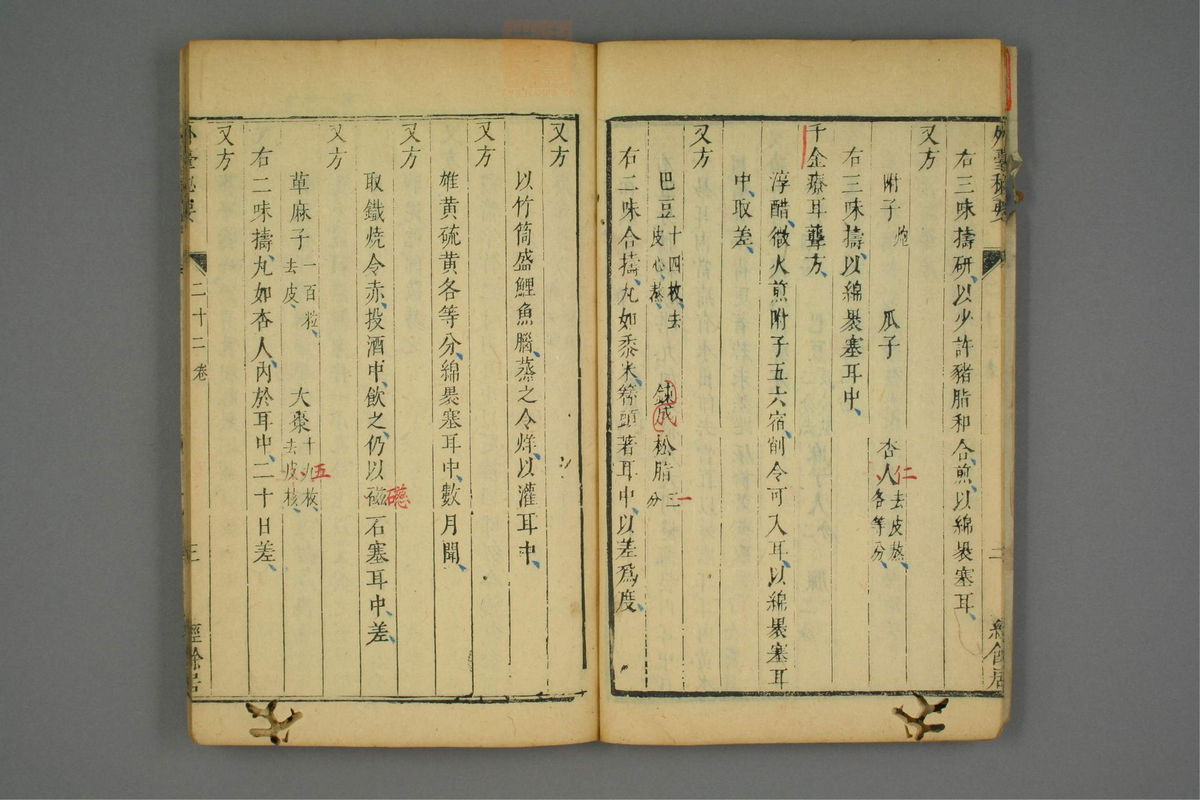 右三味擣研以少許豬脂和合煎以綿裹塞耳
又方
附子炮 瓜子 杏人去皮熬各等分
仁
右三味擣以綿裹塞耳中
千金療耳聾方
淳醋微火煎附子五六宿削令可入耳以綿裹塞耳
中取差
又方
巴豆十四枚去皮心熬 鍊成松脂三分
一
右二味合擣丸如黍米簪頭著耳中以差爲度
又方
以竹筒盛鯉魚腦蒸之令烊以灌耳中
又方
雄黄硫黄各等分綿裹塞耳中數月聞
又方
取鐵燒令赤投酒中飲之仍以磁石塞耳中差
礠
又方
萆麻子一百粒去皮 大棗十九枚去皮核
五
右二味擣丸如杏人内於耳中二十日差
又方
外臺秘要 二十二卷 三 經餘居